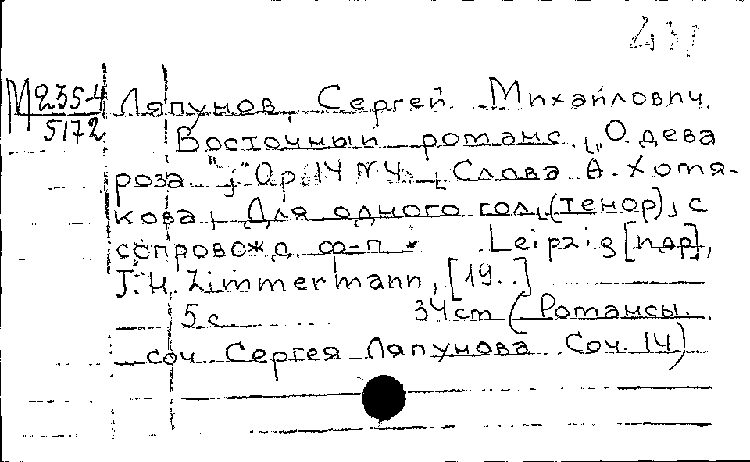 431
М 235-4
5172
Ляпунов, Сергей Михайлович.
Восточный романс, „О дева
роза", Op. 14 №4. Слова А. Хомя-
кова, Для одного гол. (тенор), с
сопровожд. ф-п. Leipzig [пдр],
J. H. Zimmermann, [19..]
5 с. 34 cm (Романсы.
соч. Сергея Ляпунова Соч. 14)